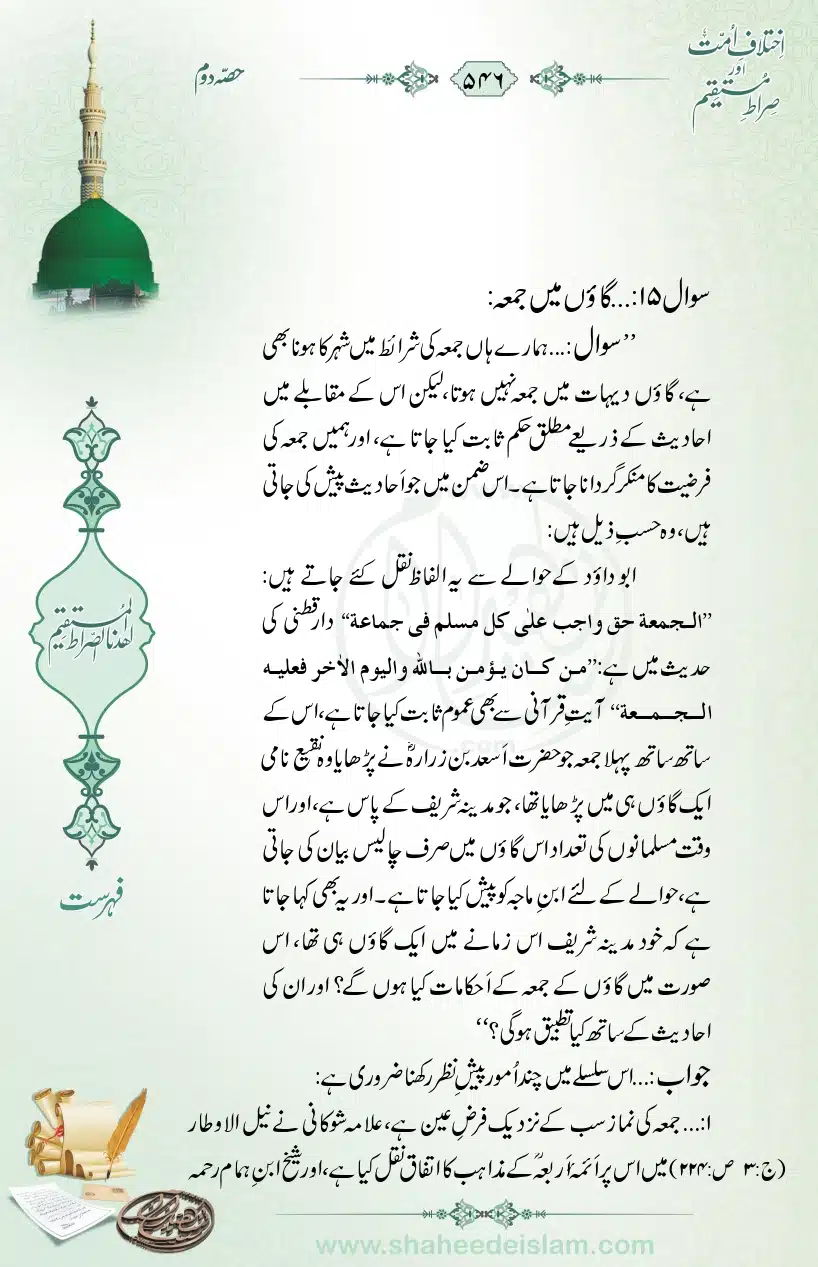 اِختلافِ اُمّت
اور
صِراطِ مُستقیم
۵۴۶
حصّہ دوم
سوال ۱۵:...گاؤں میں جمعہ:
’’سوال:...ہمارے ہاں جمعہ کی شرائط میں شہر کا ہونا بھی
ہے، گاؤں دیہات میں جمعہ نہیں ہوتا، لیکن اس کے مقابلے میں
احادیث کے ذریعے مطلق حکم ثابت کیا جاتا ہے، اور ہمیں جمعہ کی
فرضیت کا منکر گردانا جاتا ہے۔ اس ضمن میں جو اَحادیث پیش کی جاتی
ہیں، وہ حسبِ ذیل ہیں:
ابوداؤد کے حوالے سے یہ الفاظ نقل کئے جاتے ہیں:
’’الـجمعة حق واجب علٰی کل مسلم فی جماعة‘‘ دارقطنی کی
حدیث میں ہے:’’مـن کــان یـؤمـن بــالله والیوم الاٰخر فعلیـه
الــجــمــعة‘‘ آیتِ قرآنی سے بھی عموم ثابت کیا جاتا ہے، اس کے
ساتھ ساتھ پہلا جمعہ جو حضرت اَسعد بن زرارہؓ نے پڑھایا وہ نقیع نامی
ایک گاؤں ہی میں پڑھایا تھا، جو مدینہ شریف کے پاس ہے، اور اس
وقت مسلمانوں کی تعداد اس گاؤں میں صرف چالیس بیان کی جاتی
ہے، حوالے کے لئے ابنِ ماجہ کو پیش کیا جاتا ہے۔ اور یہ بھی کہا جاتا
ہے کہ خود مدینہ شریف اس زمانے میں ایک گاؤں ہی تھا، اس
صورت میں گاؤں کے جمعہ کے اَحکامات کیا ہوں گے؟ اور ان کی
احادیث کے ساتھ کیا تطبیق ہوگی؟‘‘
جواب:...اس سلسلے میں چند اُمور پیشِ نظر رکھنا ضروری ہے:
۱:...جمعہ کی نماز سب کے نزدیک فرضِ عین ہے، علامہ شوکانی نے نیل الاوطار
(ج:۳ ص:۲۲۴) میں اس پر اَئمہ اَربعہؒ کے مذاہب کا اتفاق نقل کیا ہے، اور شیخ ابنِ ہمام رحمہ
اهدنا الصّراط المُستقیم
فہرست
www.shaheedeislam.com